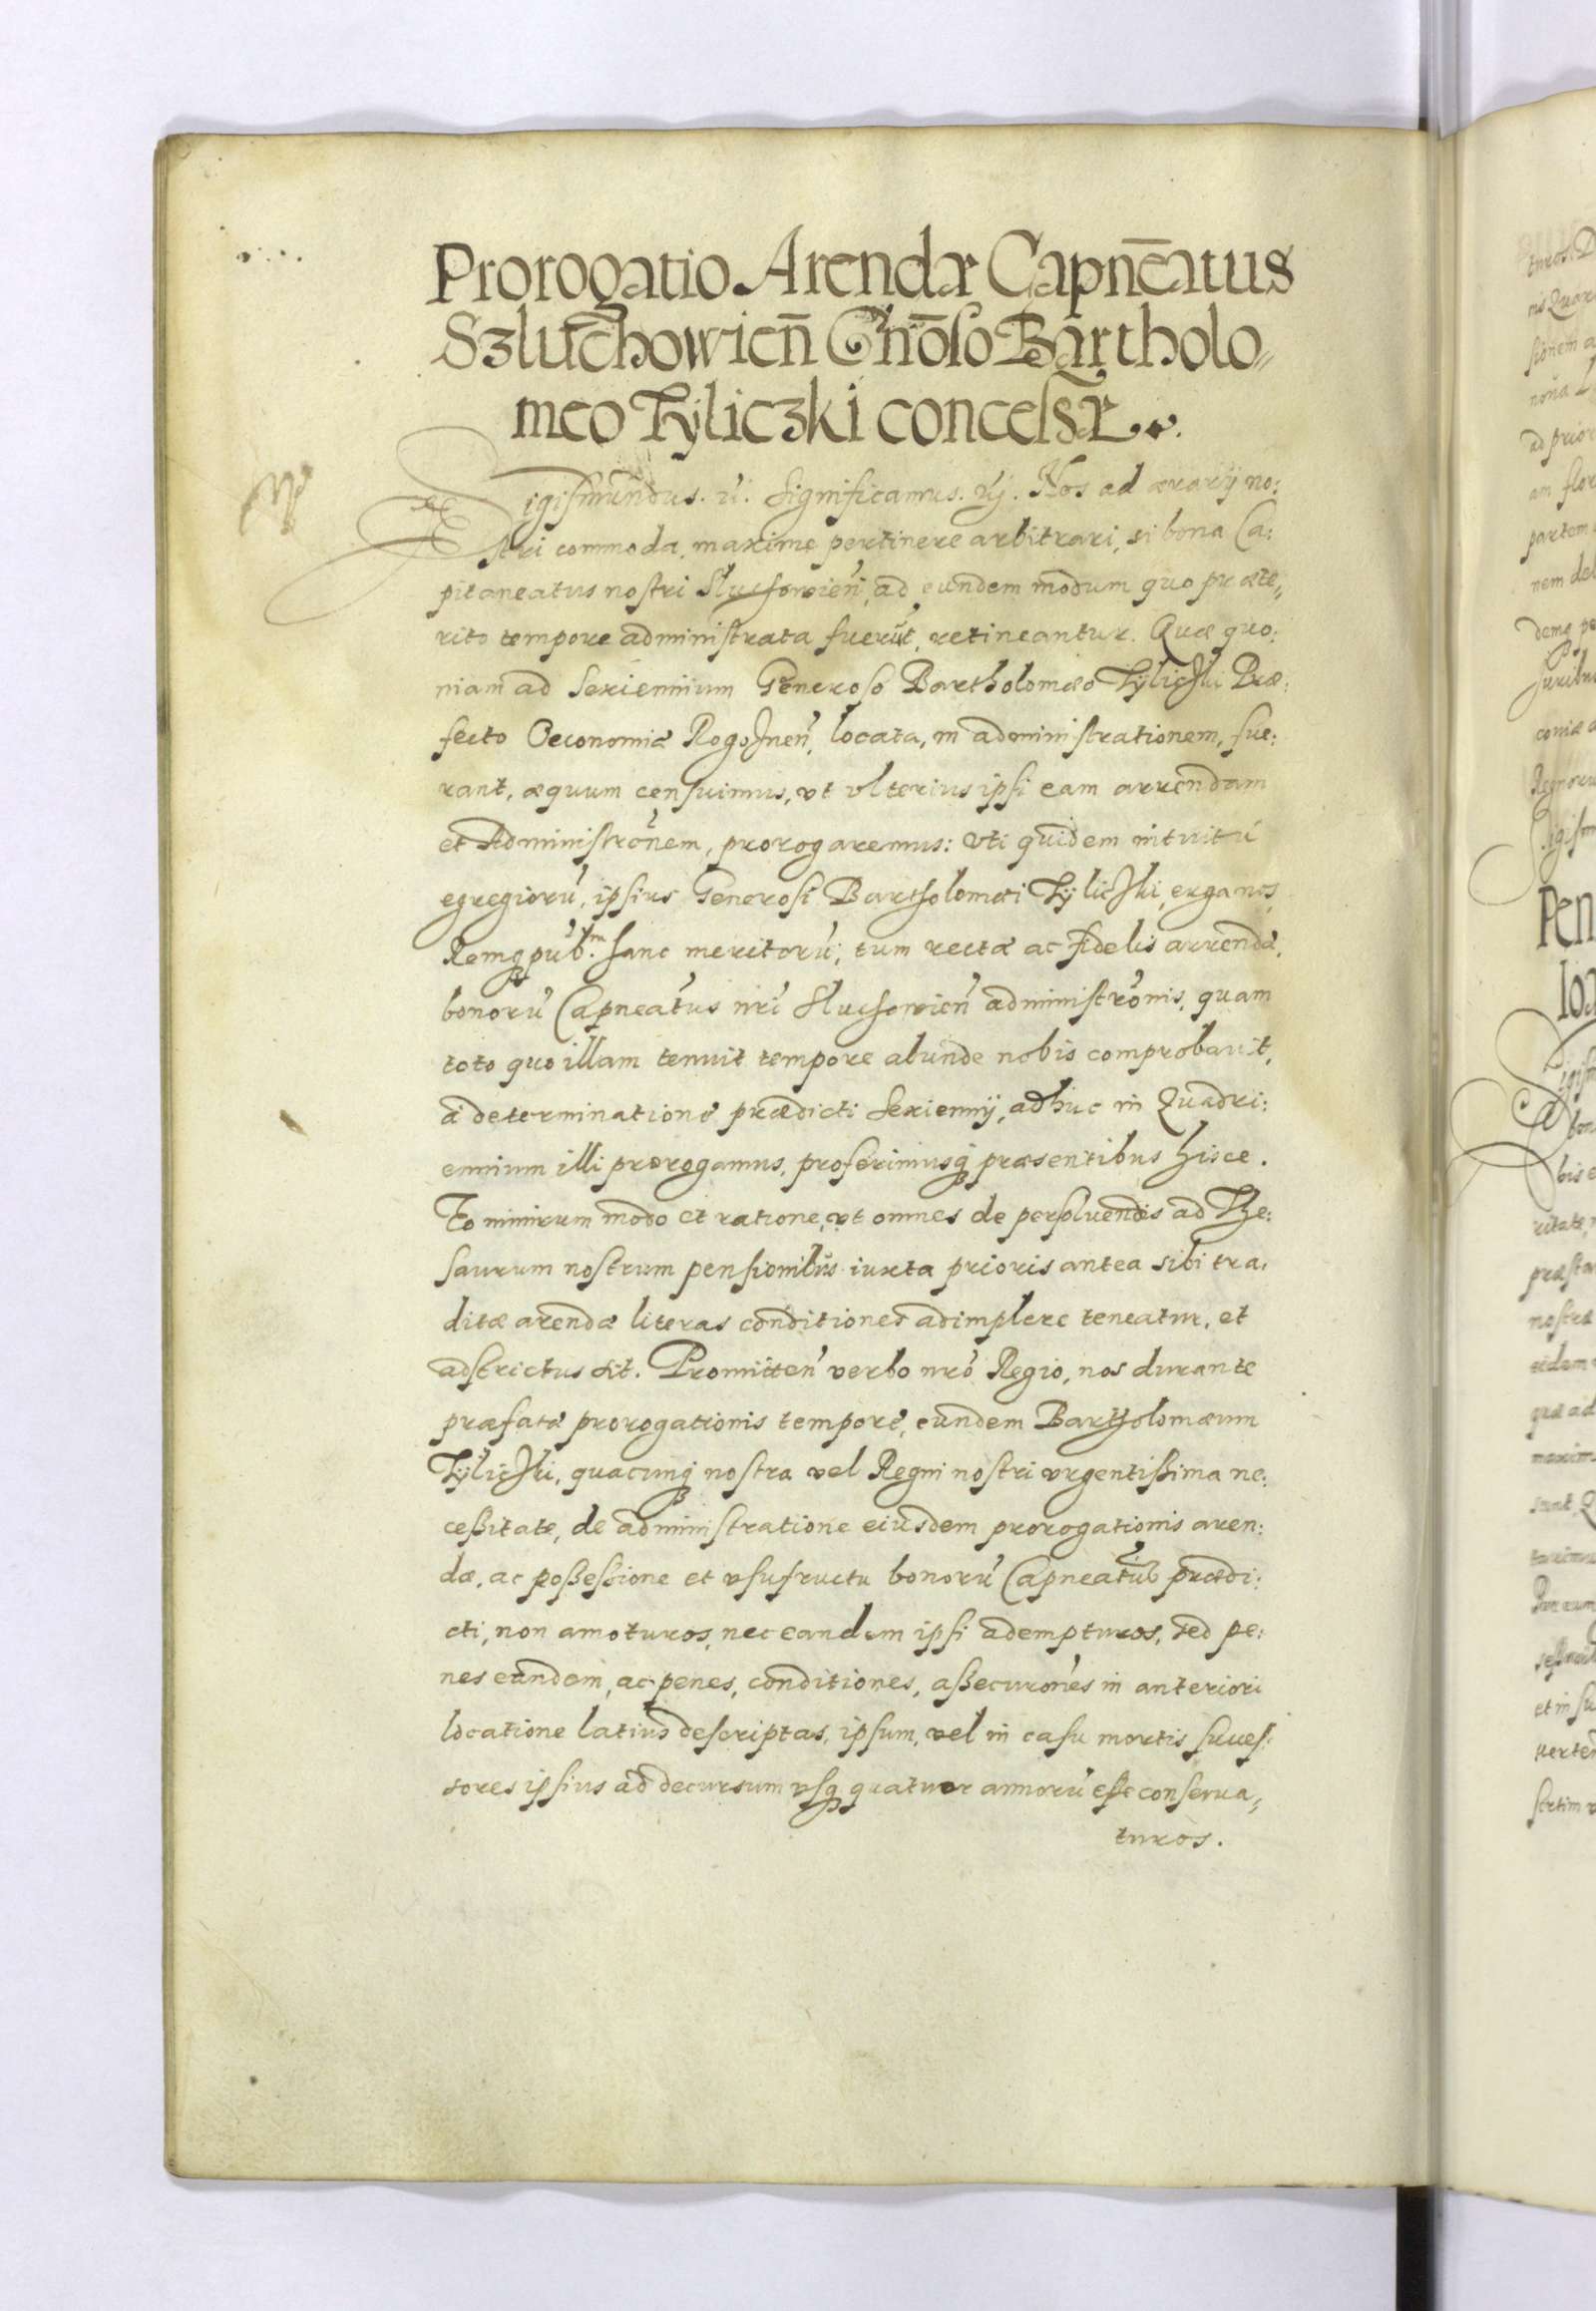 Prorogatio Arendæ Capn̄eatus
Szluchowien̄ Gn̄oso Bartholo„
meo Tyliczki concessæ.
Sigismundus. ĩ. Significamus. Nos ad ærarij no:
stri commoda, maxime pertinere arbitrari, si bona Ca:
pitaneatus nostri Sluchowień, ad eundem modum quo præte„
rito tempore administrata fuerūt, retineantur. Quæ quo:
niam ad Sexiennium Generoso Bartholomæo Tyliczki Præ:
fecto Oeconomiæ Rogoznen̄, locata, in administrationem, fue:
rant, æquum censuimus, vt vlterius ipsi eam arrendam
et Administrōnem, prorogaremus: vti quidem intuitu
egregiorū, ipsius Generosi Bartholomæi Tyliczki, erga nos,
Remq́ pub.m hanc meritorū, tum rectæ ac fidelis arrendæ,
bonorū Capneatus nrī Sluchowień administrōnis, quam
toto quo illam tenuit tempore abunde nobis comprobauit,
à determinatione prædicti Sexiennij, adhuc in Quadri:
ennium illi prorogamus, proferimusq́ præsentibus hisce.
Eo nimirum modo et ratione, vt omnes de persoluendis ad The:
saurum nostrum pensionibus iuxta prioris antea sibi tra:
ditæ arendæ literas conditiones adimplere teneatur, et
adstrictus sit. Promitteń verbo nrō Regio, nos durante
præfatæ prorogationis tempore, eundem Bartholomæum
Tyliczki, quacunq́ nostra vel Regni nostri vrgentißima ne:
ceßitate, de administratione eiusdem prorogationis aren:
dæ, ac poßeßione et vsufructu bonorū Capneatus prædi:
cti, non amoturos, nec eandem ipsi adempturos, sed pe:
nes eandem, ac penes, conditiones, aßecurōnes in anteriori
locatione latius descriptas, ipsum, vel in casu mortis succes:
sores ipsius ad decursum vsq́ quatuor annorū eße conserua„
turos.